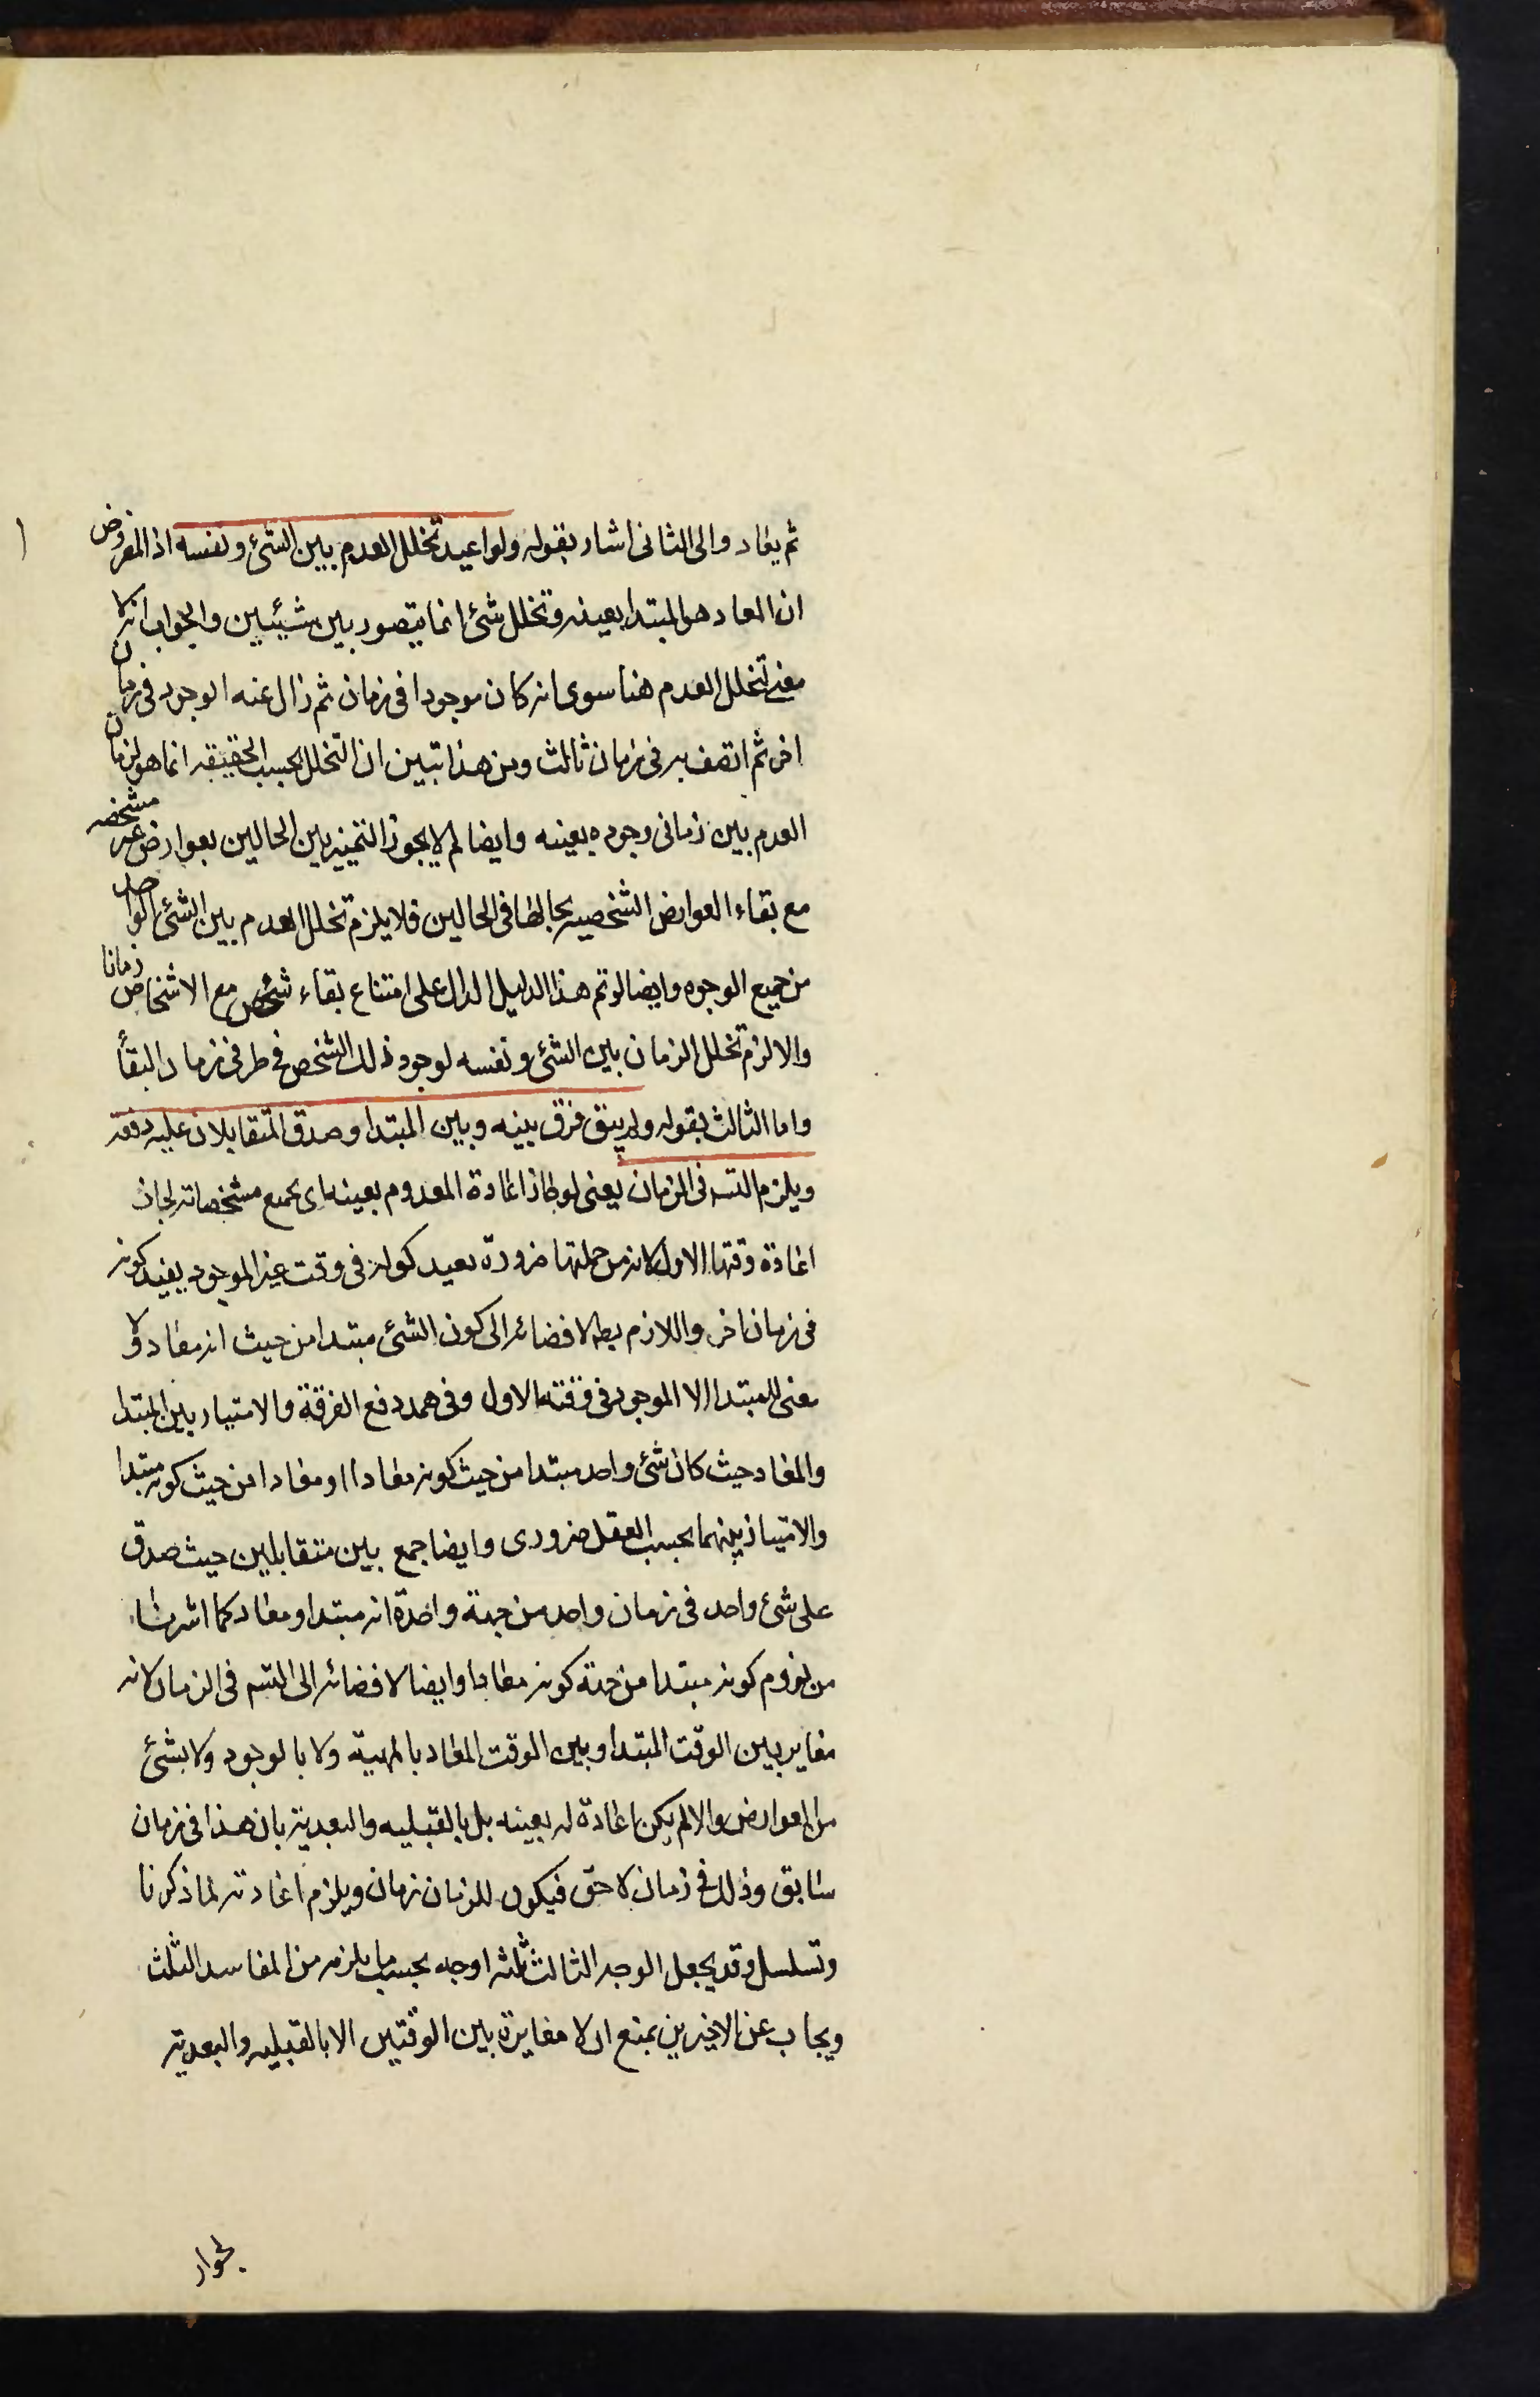 ثم يعاد والى الثانى اشار بقوله ولو اعيد تخلل العدم بين الشئ ونفسه اذ المفروض
ان المعاد هو المبتدا بعينه وتخلل شئ انما يتصور بين شيئين والجواب انه لا
معنى لتخلل العدم هنا سوى انه كان موجودا فى زمان ثم زال عنه الوجود فى زمان
اخر ثم اتصف به فى زمان ثالث ومن هذا تبين ان التخلل بحسب الحقيقه انما هو لزمان
العدم بين زمانى وجوده بعينه وايضا لم لا يجوز التمييز بين الحالين بعوارض غير مشخصه
مع بقاء العوارض الشخصيه بحالها فى الحالين فلا يلزم تخلل العدم بين الشئ الواحد
من جميع الوجوه وايضا لو تم هذا الدليل لدل على امتناع بقاء شخص مع الاشخاص زمانا
والا لزم تخلل الزمان بين الشئ ونفسه لوجود ذلك الشخص فى طرفى زمان البقأ
واما الثالث بقوله ولم يبق فرق بينه وبين المبتدا وصدق المتقابلان عليه دفعة
ويلزم التسـ فى الزمان يعنى لو جاز اعادة المعدوم بعينه اى بجميع مشخصاته لجاز
اعادة وقتها الاول لانه من جملتها ضرورة فى وقت غير الموجود بقيد كونه
فى زمان اخر واللازم بط لافضائه الى كون الشئ مبتدا من حيث انه معاد ولا
معنى للمبتدا الا الموجود فى وقته الاول وفى هذا دفع الفرقة والامتياز بين المبتدا
والمعاد حيث كان شئ واحد مبتدا من حيث كونه معادا او معادا من حيث كونه مبتدا
والامتياز بينهما بحسب العقل ضرورى وايضا جمع بين متقابلين حيث صدق
على شئ واحد فى زمان واحد من جهة واحدة انه مبتدا ومعاد كما اشرنا
من لزوم كونه مبتدا من جهة كونه معادا وايضا لافضائه الى التسـ فى الزمان لانه
مغاير بين الوقت المبتدا وبين الوقت المعاد بالمهية ولا بالوجود ولا بشئ
من العوارض والا لم يكن اعادة له بعينه بل بالقبليه والبعدية بان هذا فى زمان
سابق وذلك فى زمان لاحق فيكون للزمان زمان ويلزم اعادته لما ذكرنا
وتسلسل وقد يجعل الوجه الثالث ثلثه اوجه بحسب ما يلزمه من المفاسد الثلث
ويجاب عن الاخيرين بمنع ان لا مغايرة بين الوقتين الا بالقبليه والبعدية